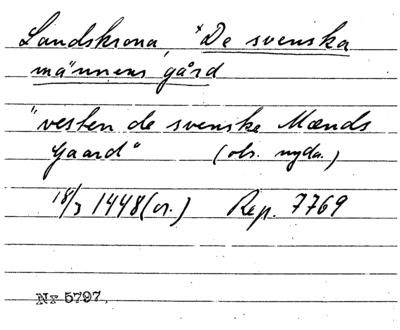 Landskrona, *De svenska
männens gård
"vesten de svenske Mænds
Gaard" (obs. nyda.)
18/3 1448 (or.) Rep. 7769
Nr 5797.